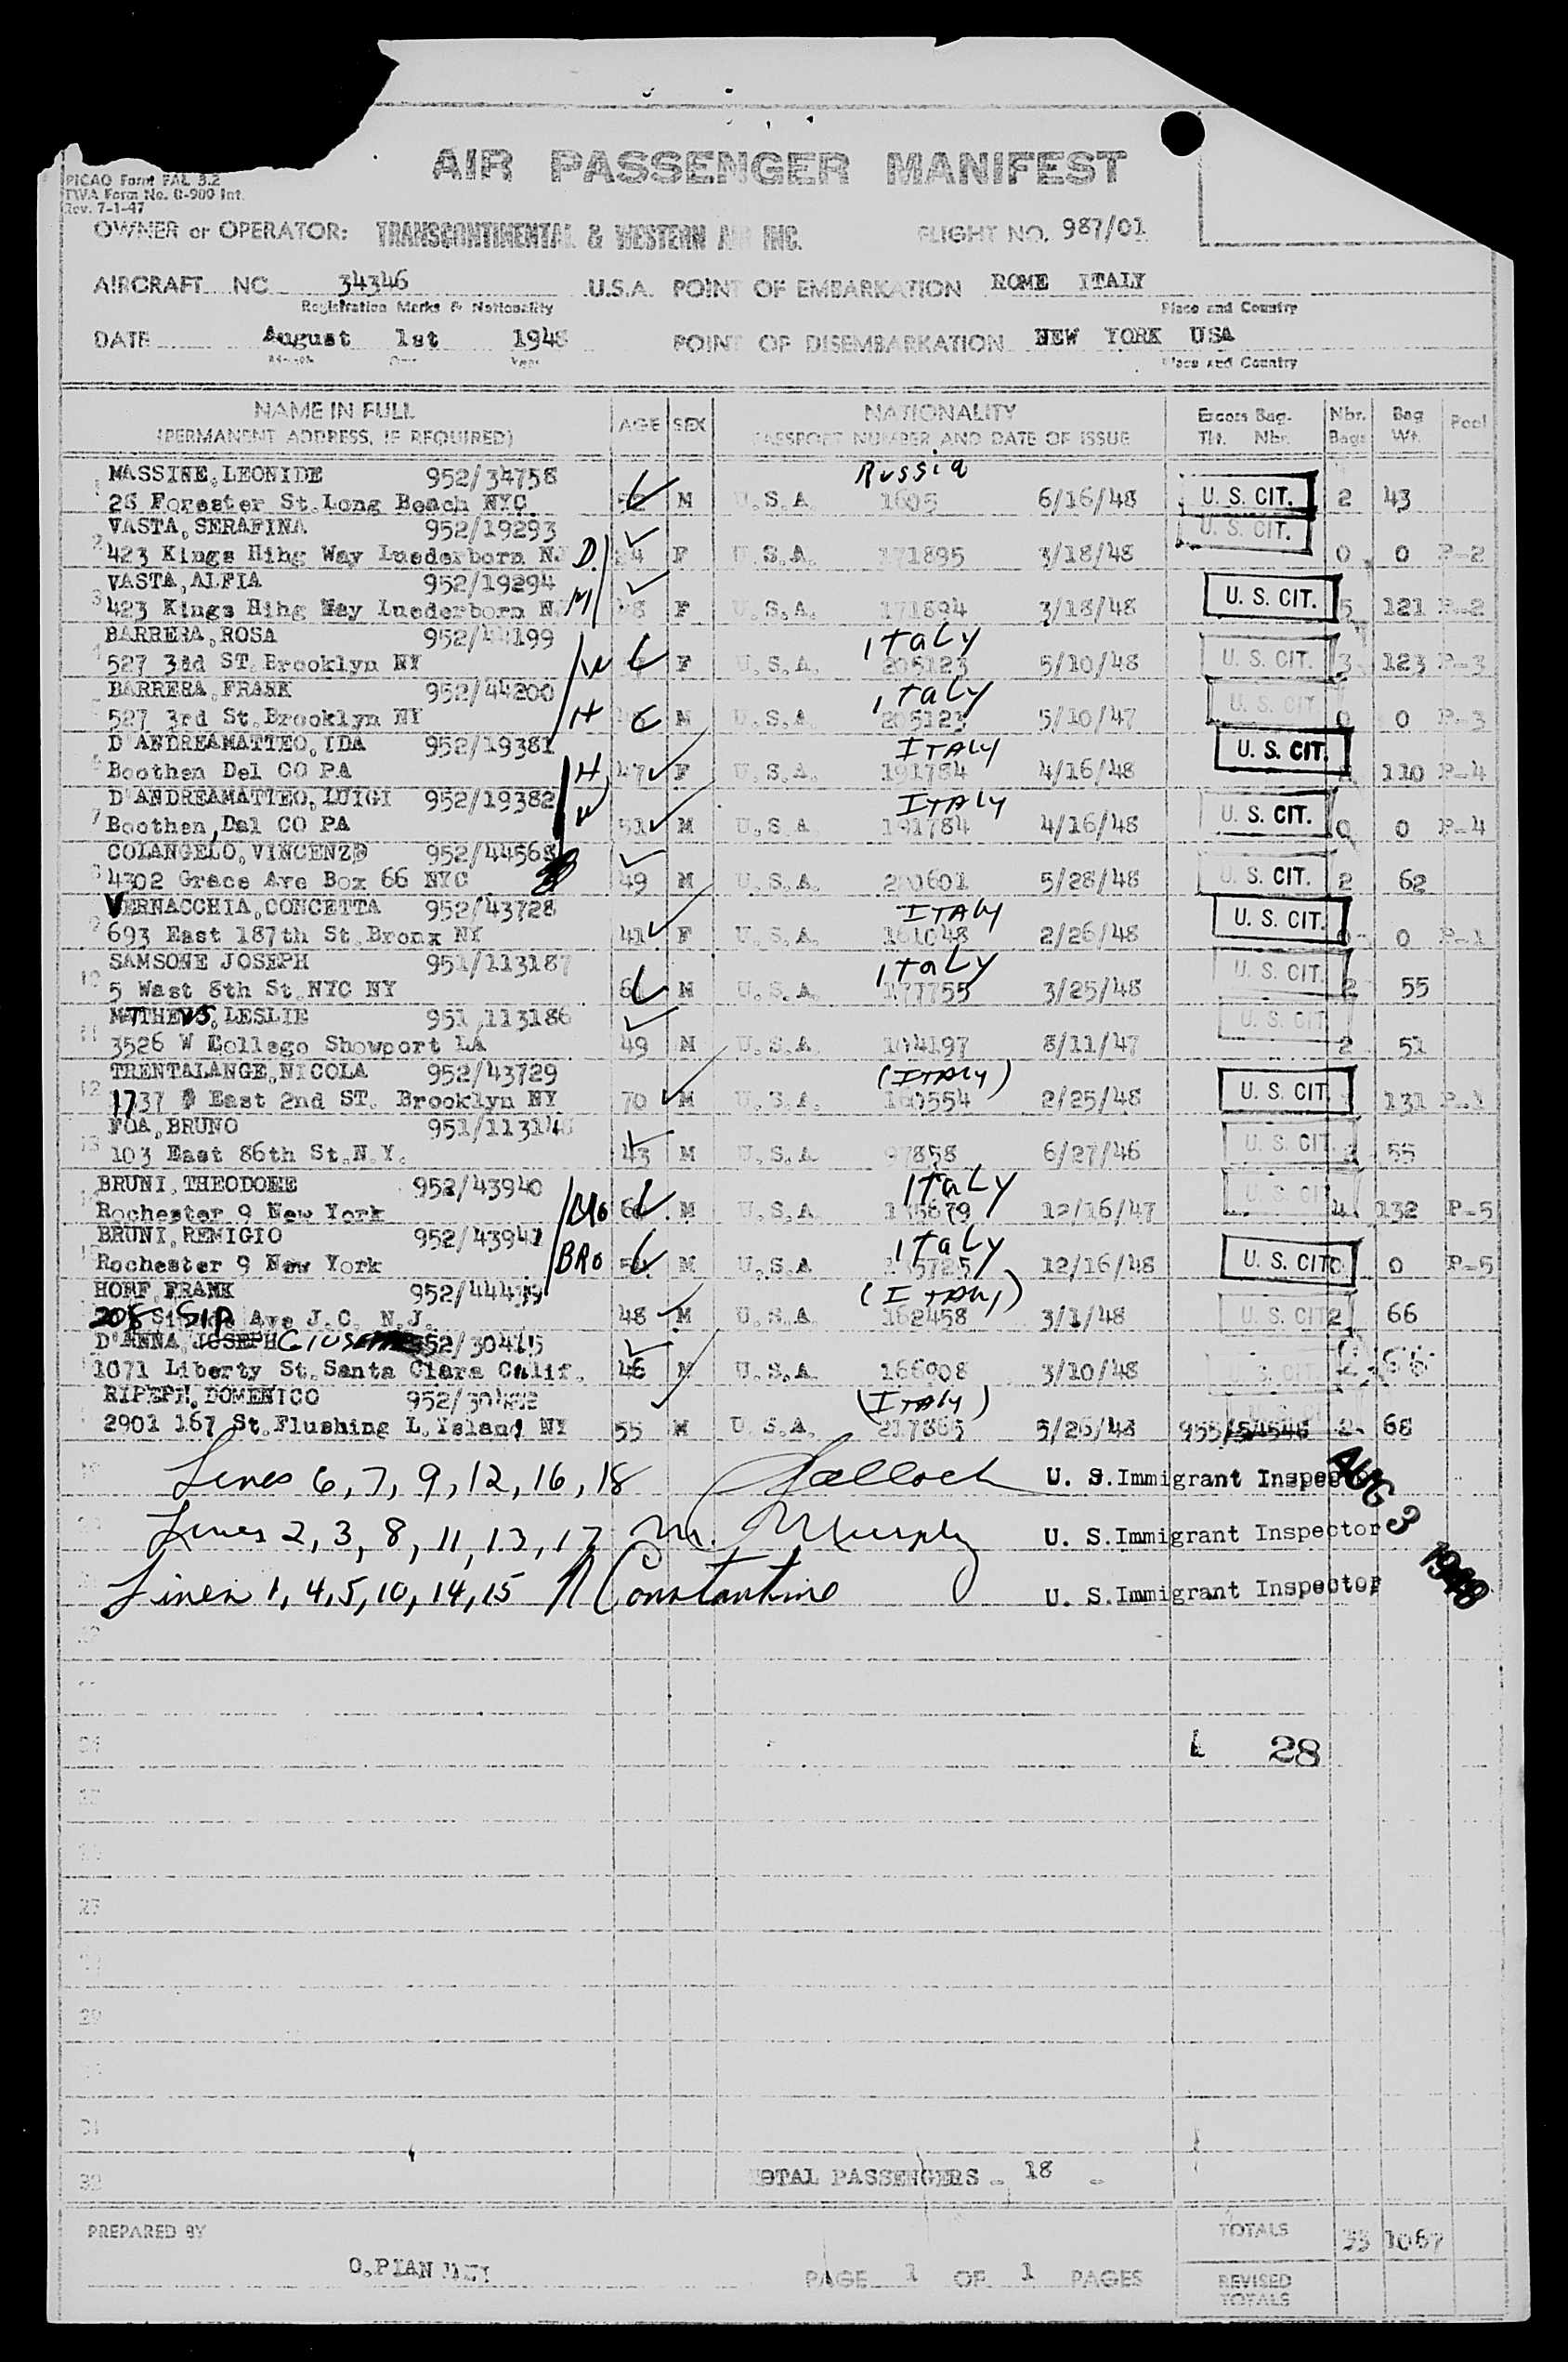 AIR PASSENGER MANIFEST
PICAO Form FAL 3.2
TWA Form No. 0-900 Int.
Rev. 7-1-47
OWNER or OPERATOR: TRANSCONTINENTAL & WESTERN AIR INC. FLIGHT NO. 987/01
AIRCRAFT NO 34346 U.S.A. POINT OF EMBARKATION ROME ITALY
Registration Marks & Nationality Place and Country
DATE August 1st 1948 POINT OF DISEMBARKATION NEW YORK USA
Month Day Year Place and Country
NAME IN FULL AGE SEX NATIONALITY Excess Bag. Nbr. Bag Pool
(PERMANENT ADDRESS, IF REQUIRED) PASSPORT NUMBER AND DATE OF ISSUE Tkt. Nbr. Bags Wt.
MASSINE, LEONIDE 952/34758 Russia
1 28 Forester St. Long Beach NYC M U.S.A 1605 6/16/48 U. S. CIT. 2 43
VASTA, SERAFINA 952/19293 U. S. CIT.
2 423 Kings Hihg Way Luederborn N. D. 24 F U.S.A. 171895 3/18/48 0 0 P-2
VASTA, ALFIA 952/19294
3 423 Kings Hihg Way Luederborn N. M 48 F U.S.A. 171894 3/18/48 U. S. CIT. 5 121 P-2
BARRERA, ROSA 952/44199 Italy
4 527 3dd ST. Brooklyn NY W F U.S.A. 205123 5/10/48 U. S. CIT. 3 123 P-3
BARRERA, FRANK 952/44200 Italy
527 3rd St. Brooklyn NY H M U.S.A 205123 5/10/47 U. S. CIT 0 0 P-3
D'ANDREAMATTEO, IDA 952/19381 ITALY
6 Boothen Del CO PA H 47 F U.S.A. 191784 4/16/48 U. S. CIT. 110 P-4
D'ANDREAMATTEO, LUIGI 952/19382 ITALY
7 Boothen, Dal CO PA W 51 M U.S.A 191784 4/16/48 U. S. CIT. 0 0 P-4
COLANGELO, VINCENZO 952/44568
8 4302 Grace Ave Box 66 NYC 49 M U.S.A. 200601 5/28/48 U. S. CIT. 2 62
VERNACCHIA, CONCETTA 952/43728 ITALY
9 693 East 187th St. Bronx NY 41 F U.S.A. 161048 2/26/48 U. S. CIT. 0 0 P-1
SAMSONE JOSEPH 951/113187 Italy
10 5 Wast 8th St. NYC NY M U.S.A 177755 3/25/48 U. S. CIT. 2 55
MATTHEWS, LESLIE 951,113186
11 3526 W College Showport LA 49 M U.S.A 104197 8/11/47 U. S. CIT 2 51
TRENTALANGE, NICOLA 952/43729 (ITALY)
12 1737 East 2nd ST. Brooklyn NY 70 M U.S.A. 160554 2/25/48 U. S. CIT 131 P-1
FOA, BRUNO 951/11314
13 103 East 86th St. N.Y. 43 M U.S.A 97858 6/27/46 U. S. CIT. 55
BRUNI, THEODOME 952/43940 Italy
Rochester 9 New York Bro M U.S.A 12/16/47 U. S. CIT 4 132 P-5
BRUNI, REMIGIO 952/43941 Italy
15 Rochester 9 New York BRO M U.S.A 12/16/48 U. S. CIT 0 0 P-5
HORF, FRANK (ITALY)
208 Sip Ave J.C. N.J. 48 M U.S.A 162458 3/1/48 U. S. CIT 2 66
D'ANNA, JOSEPH GIUSEPPE 952/30415
1071 Liberty St. Santa Clara Calif. 46 M U.S.A 166908 3/10/48 U. S. CIT
RIPEPI, DOMENICO (ITALY)
2901 167 St. Flushing L. Island NY 55 M U.S.A. 217865 5/26/48 2 68
19 Lines 6, 7, 9, 12, 16, 18 U. S. Immigrant Inspector
Lines 2, 3, 8, 11, 13, 17 M. Murphy U. S. Immigrant Inspector
Lines 1, 4, 5, 10, 14, 15 N Constantine U. S. Immigrant Inspector
AUG 3 1948
28
TOTAL PASSENGERS - 18 -
32
PREPARED BY TOTALS 33 1067
PAGE 1 OF 1 PAGES REVISED
TOTALS